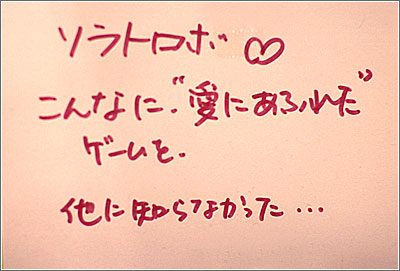 ソラトロボ♡
こんなに.“愛にあふれた”
ゲームを.
他に知らなかった…